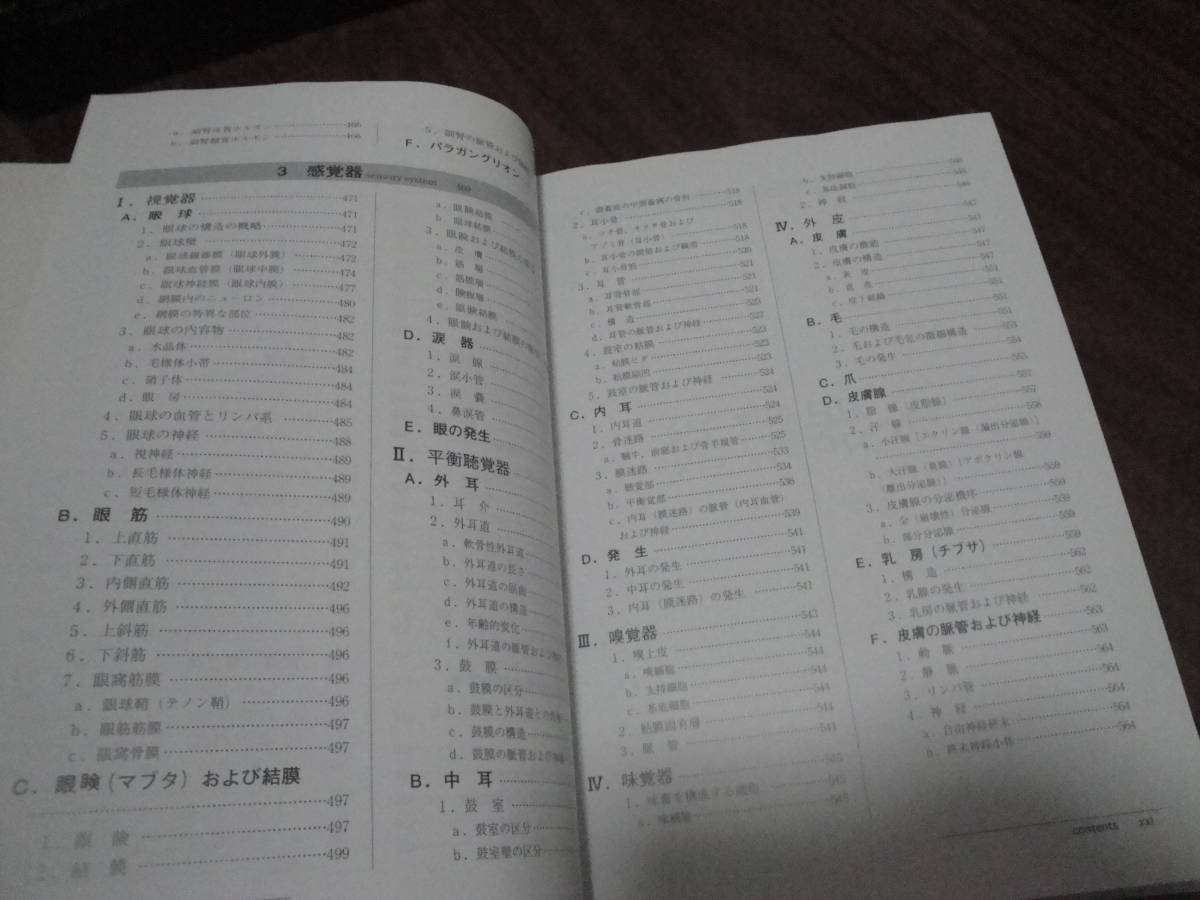 a. 副腎皮質ホルモン 466
b. 副腎髄質ホルモン 466
5. 副腎の脈管および
F. パラガングリオン
3 感覚器 sensory system 469
I. 視覚器 471
A. 眼 球 471
1. 眼球の構造の概略 471
2. 眼球壁 472
a. 眼球線維膜（眼球外膜） 472
b. 眼球血管膜（眼球中膜） 474
c. 眼球神経膜（眼球内膜） 477
d. 網膜内のニューロン 480
e. 網膜の特異な部位 482
3. 眼球の内容物 482
a. 水晶体 482
b. 毛様体小帯 484
c. 硝子体 484
d. 眼 房 484
4. 眼球の血管とリンパ系 485
5. 眼球の神経 488
a. 視神経 489
b. 長毛様体神経 489
c. 短毛様体神経 489
B. 眼 筋 490
1. 上直筋 491
2. 下直筋 491
3. 内側直筋 492
4. 外側直筋 496
5. 上斜筋 496
6. 下斜筋 496
7. 眼窩筋膜 496
a. 眼球鞘（テノン鞘） 496
b. 眼筋筋膜 497
c. 眼窩骨膜 497
C. 眼瞼（マブタ）および結膜
497
1. 眼 瞼 497
2. 結 膜 499
a. 眼瞼結膜
b. 眼球結膜
3. 眼瞼および結膜の
a. 皮 膚
b. 筋 層
c. 筋板層
d. 瞼板層
e. 眼瞼結膜
4. 眼瞼および結膜の
D. 涙 器
1. 涙 腺
2. 涙小管
3. 涙 嚢
4. 鼻涙管
E. 眼の発生
II. 平衡聴覚器
A. 外 耳
1. 耳 介
2. 外耳道
a. 軟骨性外耳道
b. 外耳道の長さ
c. 外耳道の屈曲
d. 外耳道の構造
e. 年齢的変化
f. 外耳道の脈管および
3. 鼓 膜
a. 鼓膜の区分
b. 鼓膜と外耳道との
c. 鼓膜の構造
d. 鼓膜の脈管および神経
B. 中 耳
1. 鼓 室
a. 鼓室の区分
b. 鼓室壁の区分
518
2. 耳小骨 518
a. ツチ骨，キヌタ骨および
アブミ骨（耳小骨） 518
b. 耳小骨の関節および靱帯 520
c. 耳小骨筋 521
3. 耳 管 521
a. 耳管骨部 521
b. 耳管軟骨部 523
c. 構 造 523
d. 耳管の脈管および神経 523
4. 鼓室の粘膜 523
a. 粘膜ヒダ 523
b. 粘膜陥凹 524
5. 鼓室の脈管および神経 524
C. 内 耳 524
1. 内耳道 525
2. 骨迷路 525
a. 蝸牛，前庭および骨半規管 533
3. 膜迷路 534
a. 聴覚部 536
b. 平衡覚部
c. 内耳（膜迷路）の脈管（内耳血管）
および神経 539
D. 発 生 541
1. 外耳の発生 541
2. 中耳の発生 541
3. 内耳（膜迷路）の発生 541
III. 嗅覚器 543
1. 嗅上皮 544
a. 嗅細胞 544
b. 支持細胞 544
c. 基底細胞 544
2. 粘膜固有層 544
3. 脈 管 544
IV. 味覚器 545
1. 味蕾を構成する細胞 545
a. 味細胞 545
b. 支持細胞 546
c. 基底細胞 546
2. 神 経 546
IV. 外 皮 547
A. 皮 膚 547
1. 皮膚の機能 547
2. 皮膚の構造 547
a. 表 皮
b. 真 皮
c. 皮下組織 551
B. 毛 551
1. 毛の構造 551
2. 毛および毛包の微細構造 553
3. 毛の発生 555
C. 爪 555
D. 皮膚腺 557
1. 脂 腺（皮脂腺） 557
2. 汗 腺 558
a. 小汗腺［エクリン腺（漏出分泌腺）］
559
b. 大汗腺（臭腺）［アポクリン腺
（離出分泌腺）］ 559
3. 皮膚腺の分泌機序 559
a. 全（崩壊性）分泌腺 559
b. 部分分泌腺 559
E. 乳 房（チブサ） 559
1. 構 造 562
2. 乳腺の発生 562
3. 乳房の脈管および神経 562
F. 皮膚の脈管および神経 563
1. 動 脈 563
2. 静 脈 564
3. リンパ管 564
4. 神 経 564
a. 自由神経終末 564
b. 終末神経小体 564
contents xxi